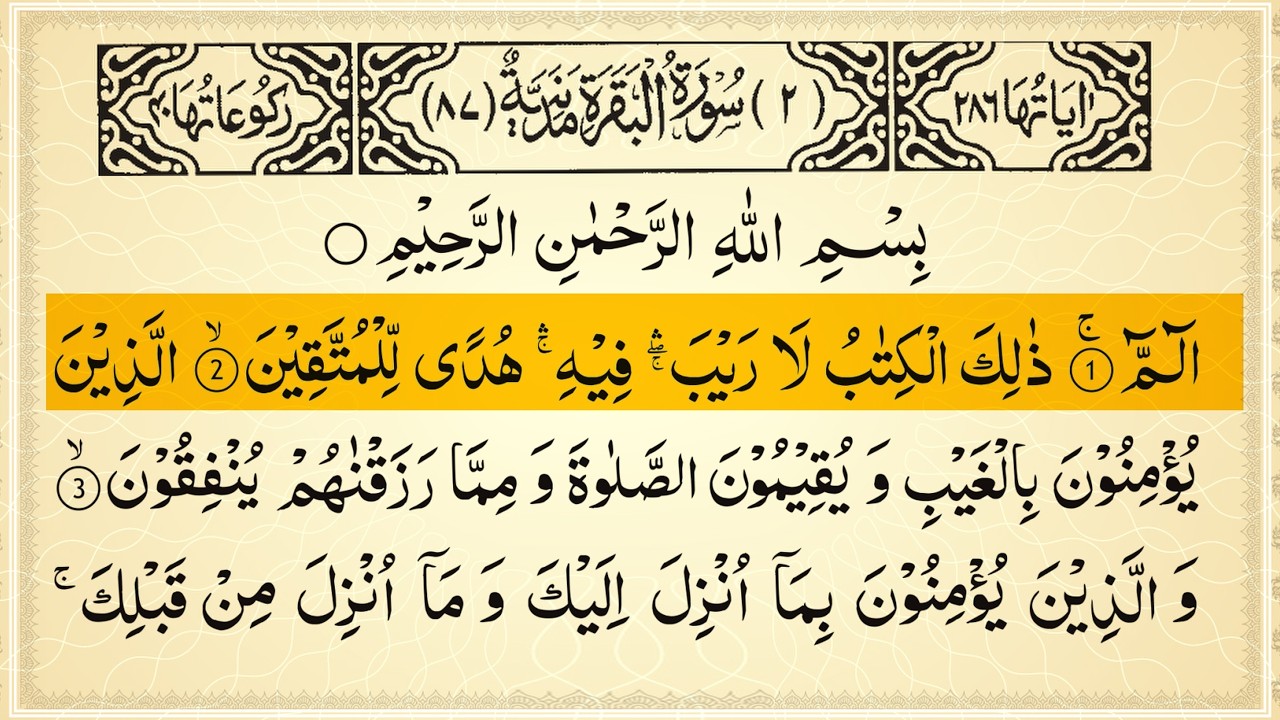 اٰيَاتُهَا ٢٨٦ (٢) سُوْرَةُ الْبَقَرَةِ مَدَنِيَّةٌ (٨٧) رُكُوْعَاتُهَا ٤٠
بِسْمِ اللّٰهِ الرَّحْمٰنِ الرَّحِيْمِ ○
الٓـمّٓ ۚ ① ذٰلِكَ الْكِتٰبُ لَا رَيْبَ ۖۛۚ فِيْهِ ۛۚ هُدًى لِّلْمُتَّقِيْنَ ۙ ② الَّذِيْنَ
يُؤْمِنُوْنَ بِالْغَيْبِ وَ يُقِيْمُوْنَ الصَّلٰوةَ وَ مِمَّا رَزَقْنٰهُمْ يُنْفِقُوْنَ ۙ ③
وَ الَّذِيْنَ يُؤْمِنُوْنَ بِمَآ اُنْزِلَ اِلَيْكَ وَ مَآ اُنْزِلَ مِنْ قَبْلِكَ ۚ